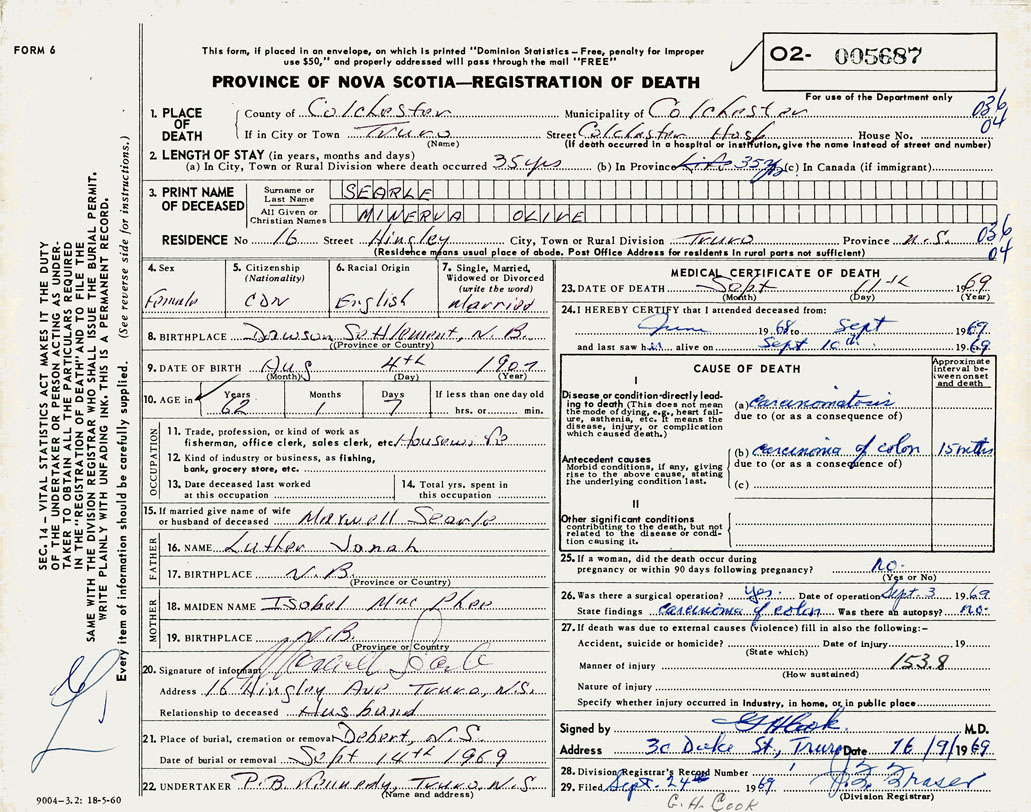 FORM 6
This form, if placed in an envelope, on which is printed "Dominion Statistics – Free, penalty for improper
use $50," and properly addressed will pass through the mail "FREE"
O2- 005687
PROVINCE OF NOVA SCOTIA—REGISTRATION OF DEATH
For use of the Department only
1. PLACE OF DEATH
County of Colchester Municipality of Colchester 036
If in City or Town Truro Street Colchester Hosp House No. 04
(Name) (If death occurred in a hospital or institution, give the name instead of street and number)
2. LENGTH OF STAY (in years, months and days)
(a) In City, Town or Rural Division where death occurred 35yrs (b) In Province Life 35yrs (c) In Canada (if immigrant)
3. PRINT NAME OF DECEASED
Surname or Last Name SEARLE
All Given or Christian Names MINERVA OLIVE
RESIDENCE No 16 Street Hingley City, Town or Rural Division Truro Province N.S. 036 04
(Residence means usual place of abode. Post Office Address for residents in rural parts not sufficient)
4. Sex Female
5. Citizenship (Nationality) CDN
6. Racial Origin English
7. Single, Married, Widowed or Divorced (write the word) Married
8. BIRTHPLACE Dawson Settlement, N.B.
(Province or Country)
9. DATE OF BIRTH Aug 4th 1907
(Month) (Day) (Year)
10. AGE in Years 62 Months 1 Days 7 If less than one day old hrs. or min.
OCCUPATION
11. Trade, profession, or kind of work as fisherman, office clerk, sales clerk, etc. Housewife
12. Kind of industry or business, as fishing, bank, grocery store, etc.
13. Date deceased last worked at this occupation
14. Total yrs. spent in this occupation
15. If married give name of wife or husband of deceased Maxwell Searle
FATHER
16. NAME Luther Jonah
17. BIRTHPLACE N.B.
(Province or Country)
MOTHER
18. MAIDEN NAME Isabel MacPhee
19. BIRTHPLACE N.B.
(Province or Country)
20. Signature of informant Maxwell Searle
Address 16 Hingley Ave Truro, N.S.
Relationship to deceased Husband
21. Place of burial, cremation or removal Debert, N.S.
Date of burial or removal Sept 14th 1969
22. UNDERTAKER P.B. Kennedy, Truro, N.S.
(Name and address)
MEDICAL CERTIFICATE OF DEATH
23. DATE OF DEATH Sept 11th 1969
(Month) (Day) (Year)
24. I HEREBY CERTIFY that I attended deceased from:
June 1968 to Sept 1969
and last saw her alive on Sept 10th 1969
CAUSE OF DEATH
Approximate interval between onset and death
I
Disease or condition directly leading to death (This does not mean the mode of dying, e.g., heart failure, asthenia, etc. It means the disease, injury, or complication which caused death.)
(a) carcinomatosis
due to (or as a consequence of)
Antecedent causes
Morbid conditions, if any, giving rise to the above cause, stating the underlying condition last.
(b) carcinoma of colon 15 mths
due to (or as a consequence of)
(c)
II
Other significant conditions
contributing to the death, but not related to the disease or condition causing it.
25. If a woman, did the death occur during
pregnancy or within 90 days following pregnancy? no
(Yes or No)
26. Was there a surgical operation? Yes. Date of operation Sept. 3 1969
State findings carcinoma of colon Was there an autopsy? no
27. If death was due to external causes (violence) fill in also the following:–
Accident, suicide or homicide? Date of injury 19
(State which)
Manner of injury 153.8
(How sustained)
Nature of injury
Specify whether injury occurred in industry, in home, or in public place
Signed by G H Cook M.D.
Address 30 Duke St, Truro Date 16/9/1969
28. Division Registrar's Record Number
29. Filed Sept. 24 1969 Fraser
(Division Registrar)
G. H. COOK
SEC. 14 – VITAL STATISTICS ACT MAKES IT THE DUTY
OF THE UNDERTAKER OR PERSON ACTING AS UNDER-
TAKER TO OBTAIN ALL THE PARTICULARS REQUIRED
IN THE "REGISTRATION OF DEATH" AND TO FILE THE
SAME WITH THE DIVISION REGISTRAR WHO SHALL ISSUE THE BURIAL PERMIT.
WRITE PLAINLY WITH UNFADING INK. THIS IS A PERMANENT RECORD.
Every item of information should be carefully supplied. (See reverse side for instructions.)
9004-3.2: 18-5-60